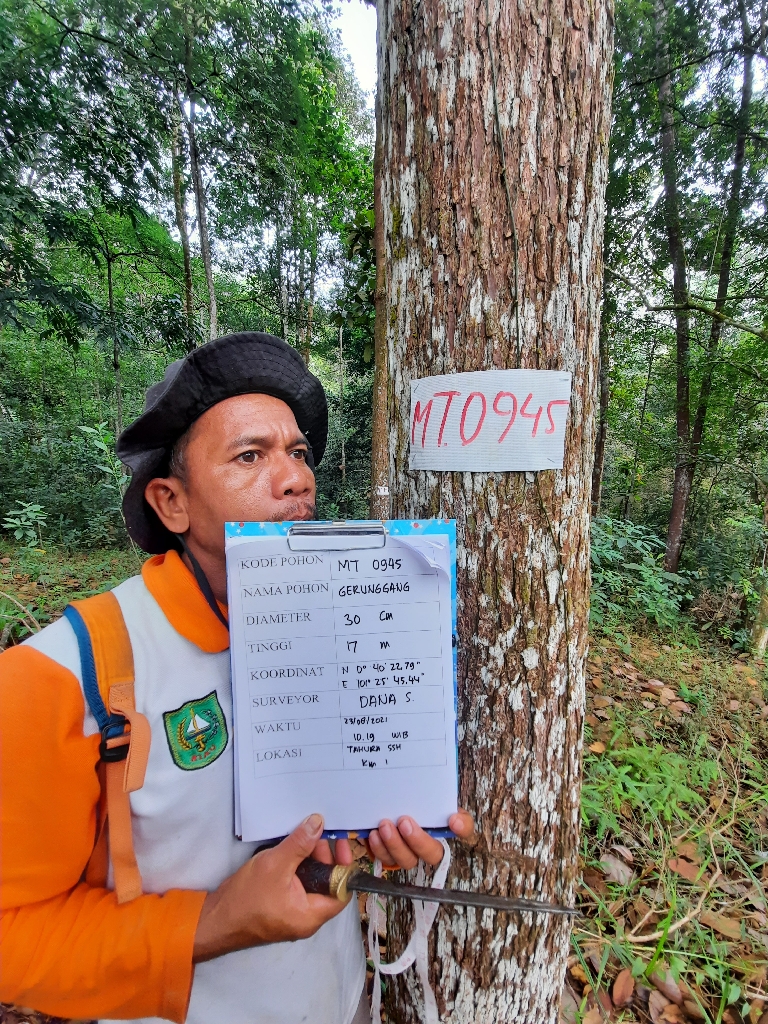 MT.0945
KODE POHON MT 0945
NAMA POHON GERUNGGANG
DIAMETER 30 Cm
TINGGI 17 m
KOORDINAT N 0° 40' 22.79"
E 101° 25' 45.44"
SURVEYOR DANA S.
WAKTU 23/08/2021
10.19 WIB
LOKASI TAHURA SSH
Km 1
RIAU